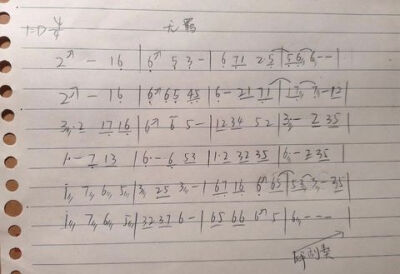 1=D 4/4 无羁
2 - 16 | 6 5 3 - | 6 71 2 5 | 56 6 - - |
2 - 16 | 6 65 45 | 6 - 21 71 | 17 7 - 12 |
3 · 2 17 16 | 6 6 5 - | 1234 5 2 | 3 · - 2 35 |
1 · - 7 13 | 6 · - 6 53 | 1 · 2 32 35 | 6 · - 2 35 |
1 7 6 5 | 3 25 3 - | 67 16 6 65 | 53 3 - 35 |
1 7 6 5 | 32 37 6 - | 65 66 6 5 | 6 - - - |